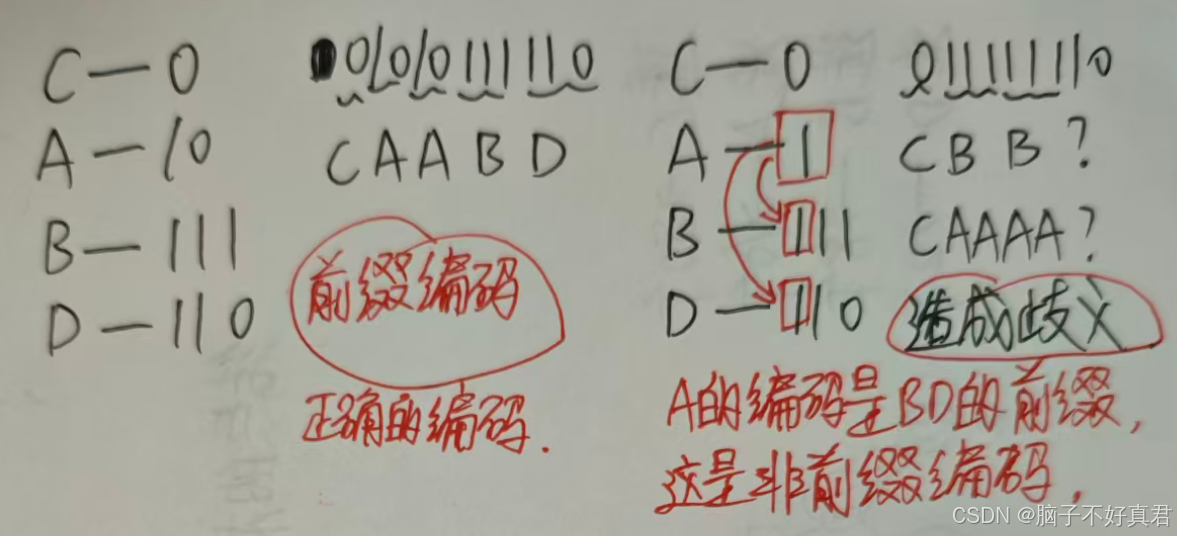 C—0
01010111110
A—10
CAABD
B—111
D—110
前缀编码
正确的编码.
C—0
0111111110
A—1
CBB?
B—111
CAAAA?
D—110
造成歧义
A的编码是BD的前缀,
这是非前缀编码,
CSDN @脑子不好真君